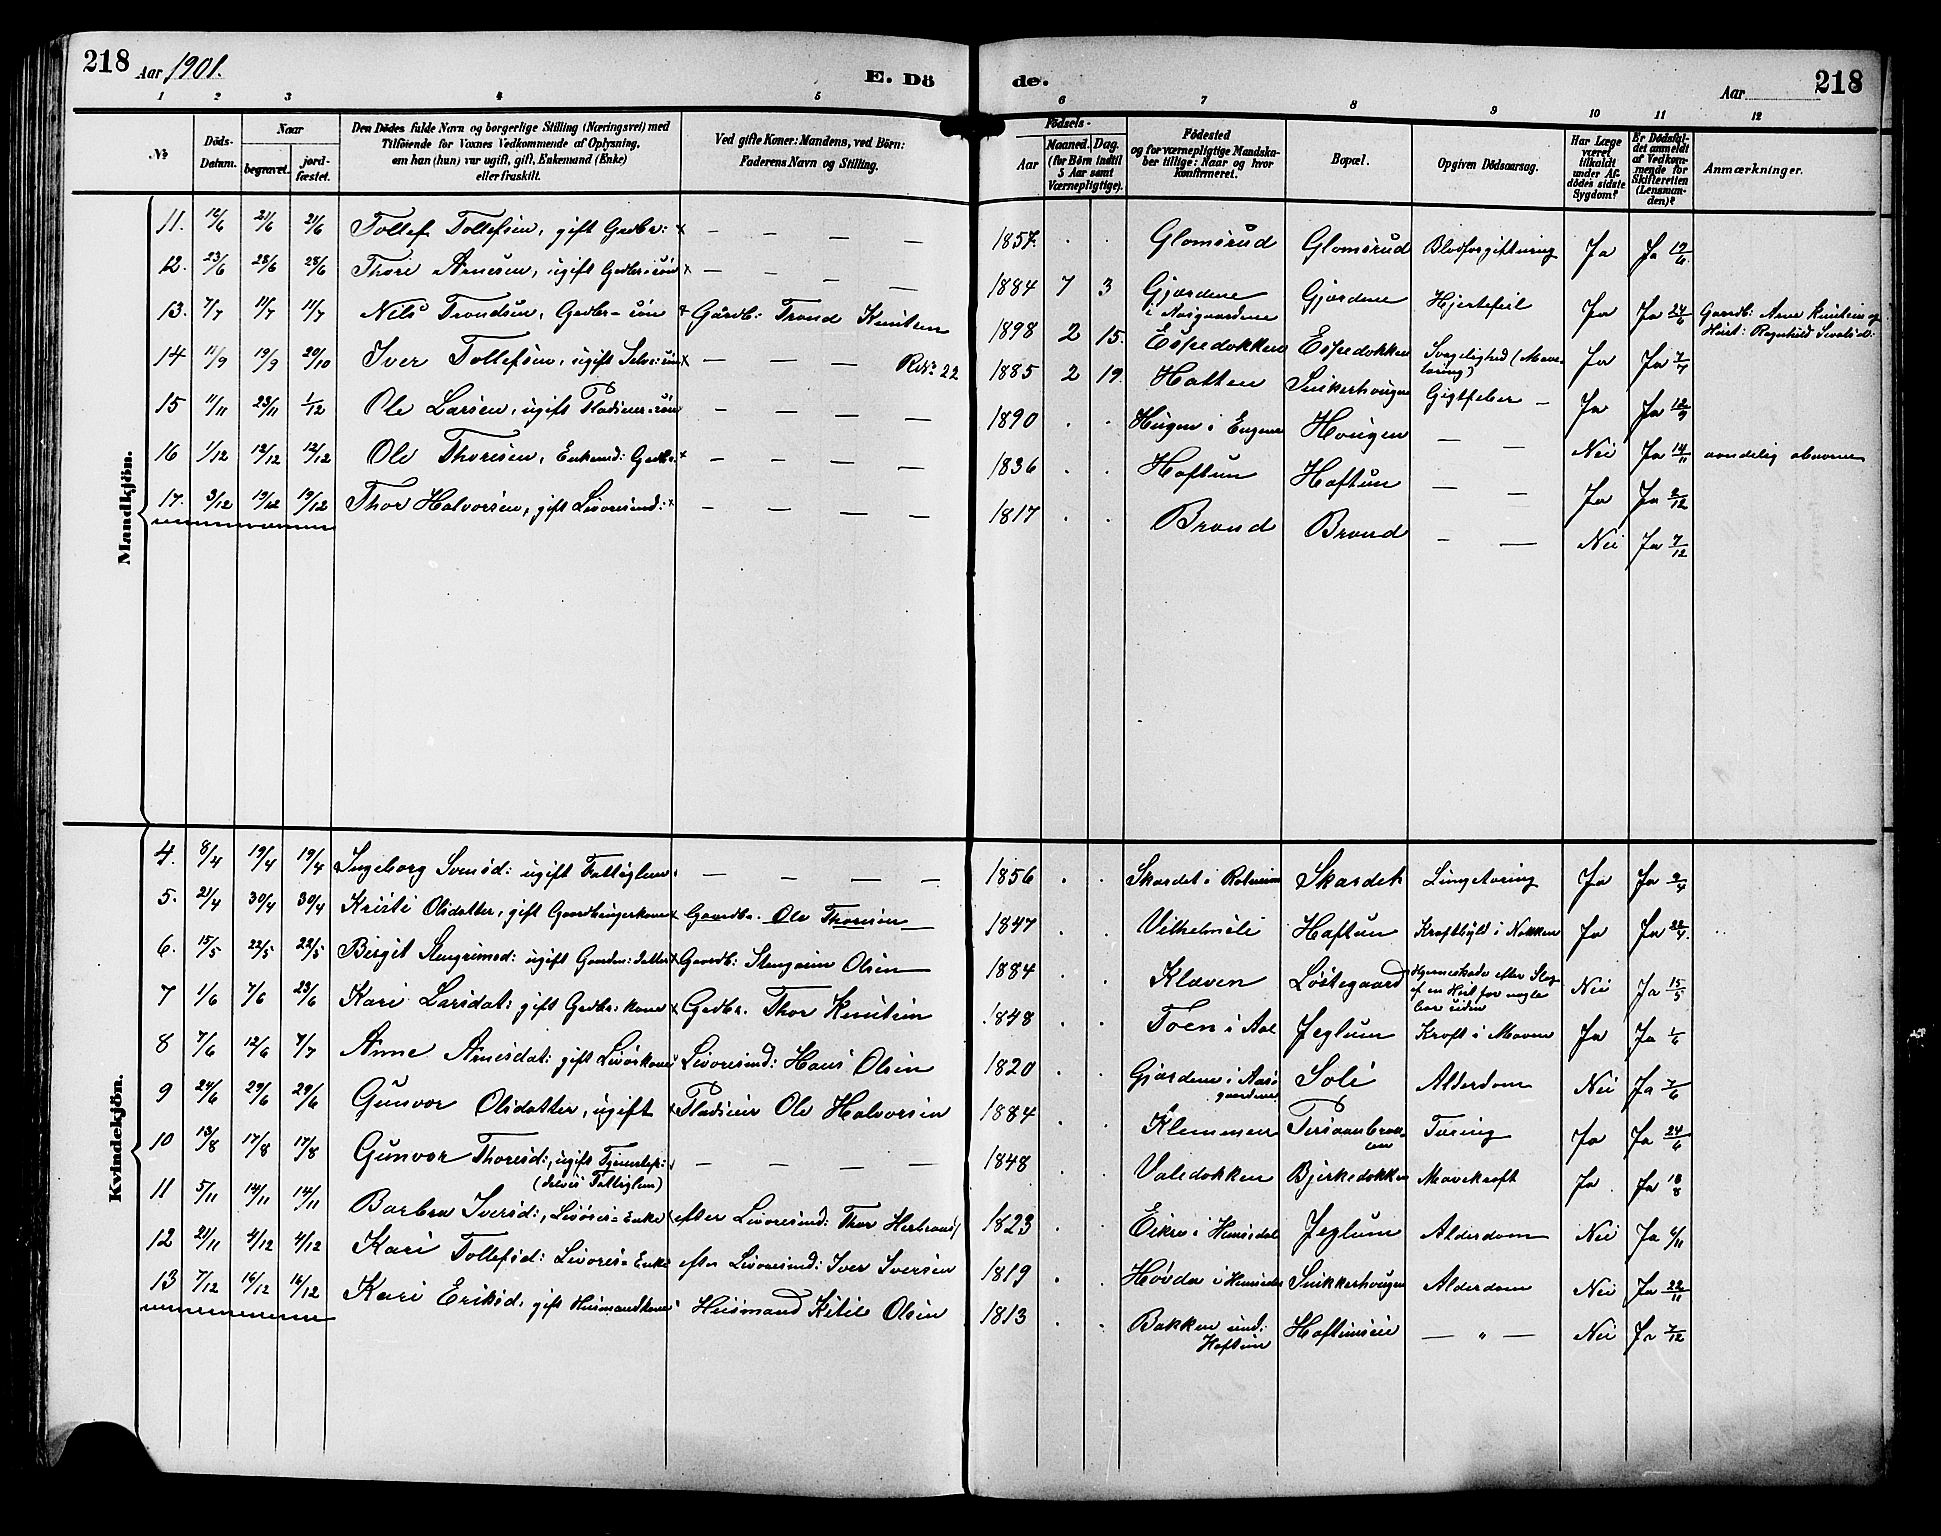 218 Aar 1901. E. Dö de. Aar 218
1 2 3 4 5 6 7 8 9 10 11 12
No
Döds-Datum.
Naar
begravet.
jord-fæstet.
Den Dödes fulde Navn og borgerlige Stilling (Næringsvei) med
Tilföiende for Voxnes Vedkommende af Oplysning,
om han (hun) var ugift, gift, Enkemand (Enke)
eller fraskilt.
Ved gifte Koner: Mandens, ved Börn:
Faderens Navn og Stilling.
Födsels-
Aar
Maaned. Dag.
(for Börn indtil
5 Aar samt
Værnepligtige).
Födested
og for værnepligtige Mandska-
ber tillige: Naar og hvor
Konfirmeret.
Bopæl.
Opgiven Dödsaarsag.
Har Læge
været
tilkaldt
under Af-
dödes sidste
Sygdom?
Er Dödsfal-
det anmeldt
af Vedkom-
mende for
Skifteretten
(Lensman-
den)?
Anmærkninger.
Mandkjön.
11. 21/6 21/6 Tollef Tollefsen, gift Gedbr: x — — — — 1857. . . Glomsrud Glomsrud Blodforgiftning Ja Ja
12. 23/6 28/6 28/6 Thore Arnesen, ugift Gedbr: sön x — — — 1884 7 3 Gjordene i Aasgaardene Gjordene Hjertefeil Ja Ja 24/6 Gaardb: Arne Knutsen og Hust: Ragnhild
13. 7/7 11/7 11/7 Nils Trondsen, Gedbr- sön x Gaardb: Trond Knutsen 1898 2 15. Espedokken Espedokken Svagelighed (Mave- Ja Ja 7/7
14 11/9 19/9 20/10 Iver Tollefsen, ugift Selve: sön x — — R.No: 22 1885 2 19. Hatten Snikerhougen Gigtfeber — Ja Ja 12/9
15 11/11 23/11 1/12 Ole Larsen, ugift Pladseier- sön — — — — 1890 . . Haugen i Hougen — — Nei Ja 14/11
16 1/12 12/12 12/12 Ole Thoresen, Enkemd: Gedbr. x — — — — 1836 . . Haftun Haftun — — Ja Ja 2/12
17. 3/12 19/12 19/12 Thor Halvorsen, gift Livöresmd: x — — — — 1817 . . Brand Brand — — Nei Ja 7/12
Kvindekjön.
4. 8/4 19/4 19/4 Ingeborg Svensd: ugift Fattiglem — — — — 1856 . . Skardet i Skardet Lungetæring Ja Ja 9/4
5. 21/4 30/4 30/4 Kristi Olsdatter, gift Gaardbrugerkone x Gaardbr. Ole Thoresen 1847 . . Vilhelmsli Haftun Kræftbyld i Nakken Ja Ja 22/4.
6. 15/5 22/5 22/5 Birgit Stengrimsd: ugift Gaardm: datter x Gaardb: Stengrim Olsen 1884 . Klæven Löstegaard Hjerneskade efter Slag af en Hest for nogle Aar siden Nei Ja 15/5
7 1/6 7/6 23/6 Kari Larsdat: gift Gedbr. kone x Gedbr. Thor Knutsen 1848 . . Toen i Aal Jeglum Kræft i Maven Ja Ja 1/6
8 7/6 12/6 7/7 Anne Arnesdat: gift Livörskone Livöresmd: Hans Olsen 1820 . . Gjordene i Aasgaardene Soli Alderdom Nei Ja 7/6
9 24/6 29/6 29/6 Gunvor Olsdatter, ugift x Pladseier Ole Halvorsen 1884 . . Klemmen Tæring Ja Ja 24/6
10 13/8 17/8 17/8 Gunvor Thoresd:, ugift Tjeneste: (delvis Fattiglem) — — — — 1848 . . Valedokken Bjerkedokken Mavekræft Ja Ja 18/8
11 5/11 14/11 14/11 Barbra Iversd:, Livöres- Enke efter Livöresmd: Thor 1823 . . Eikre i Hemsedal Jeglum Alderdom Nei Ja 6/11
12 21/11 4/12 4/12 Kari Tollefsd: Livöres- Enke efter Livöresmd: Iver Iversen 1819 . . Hövda i Hemsedal Snikkerhougen Alderdom Nei Ja 22/11
13 7/12 16/12 16/12 Kari Eriksd, gift Husmandskone Husmand Kitil Olsen 1813 . . Bakken und: Haftun Haftunseie — " — Nei Ja 7/12